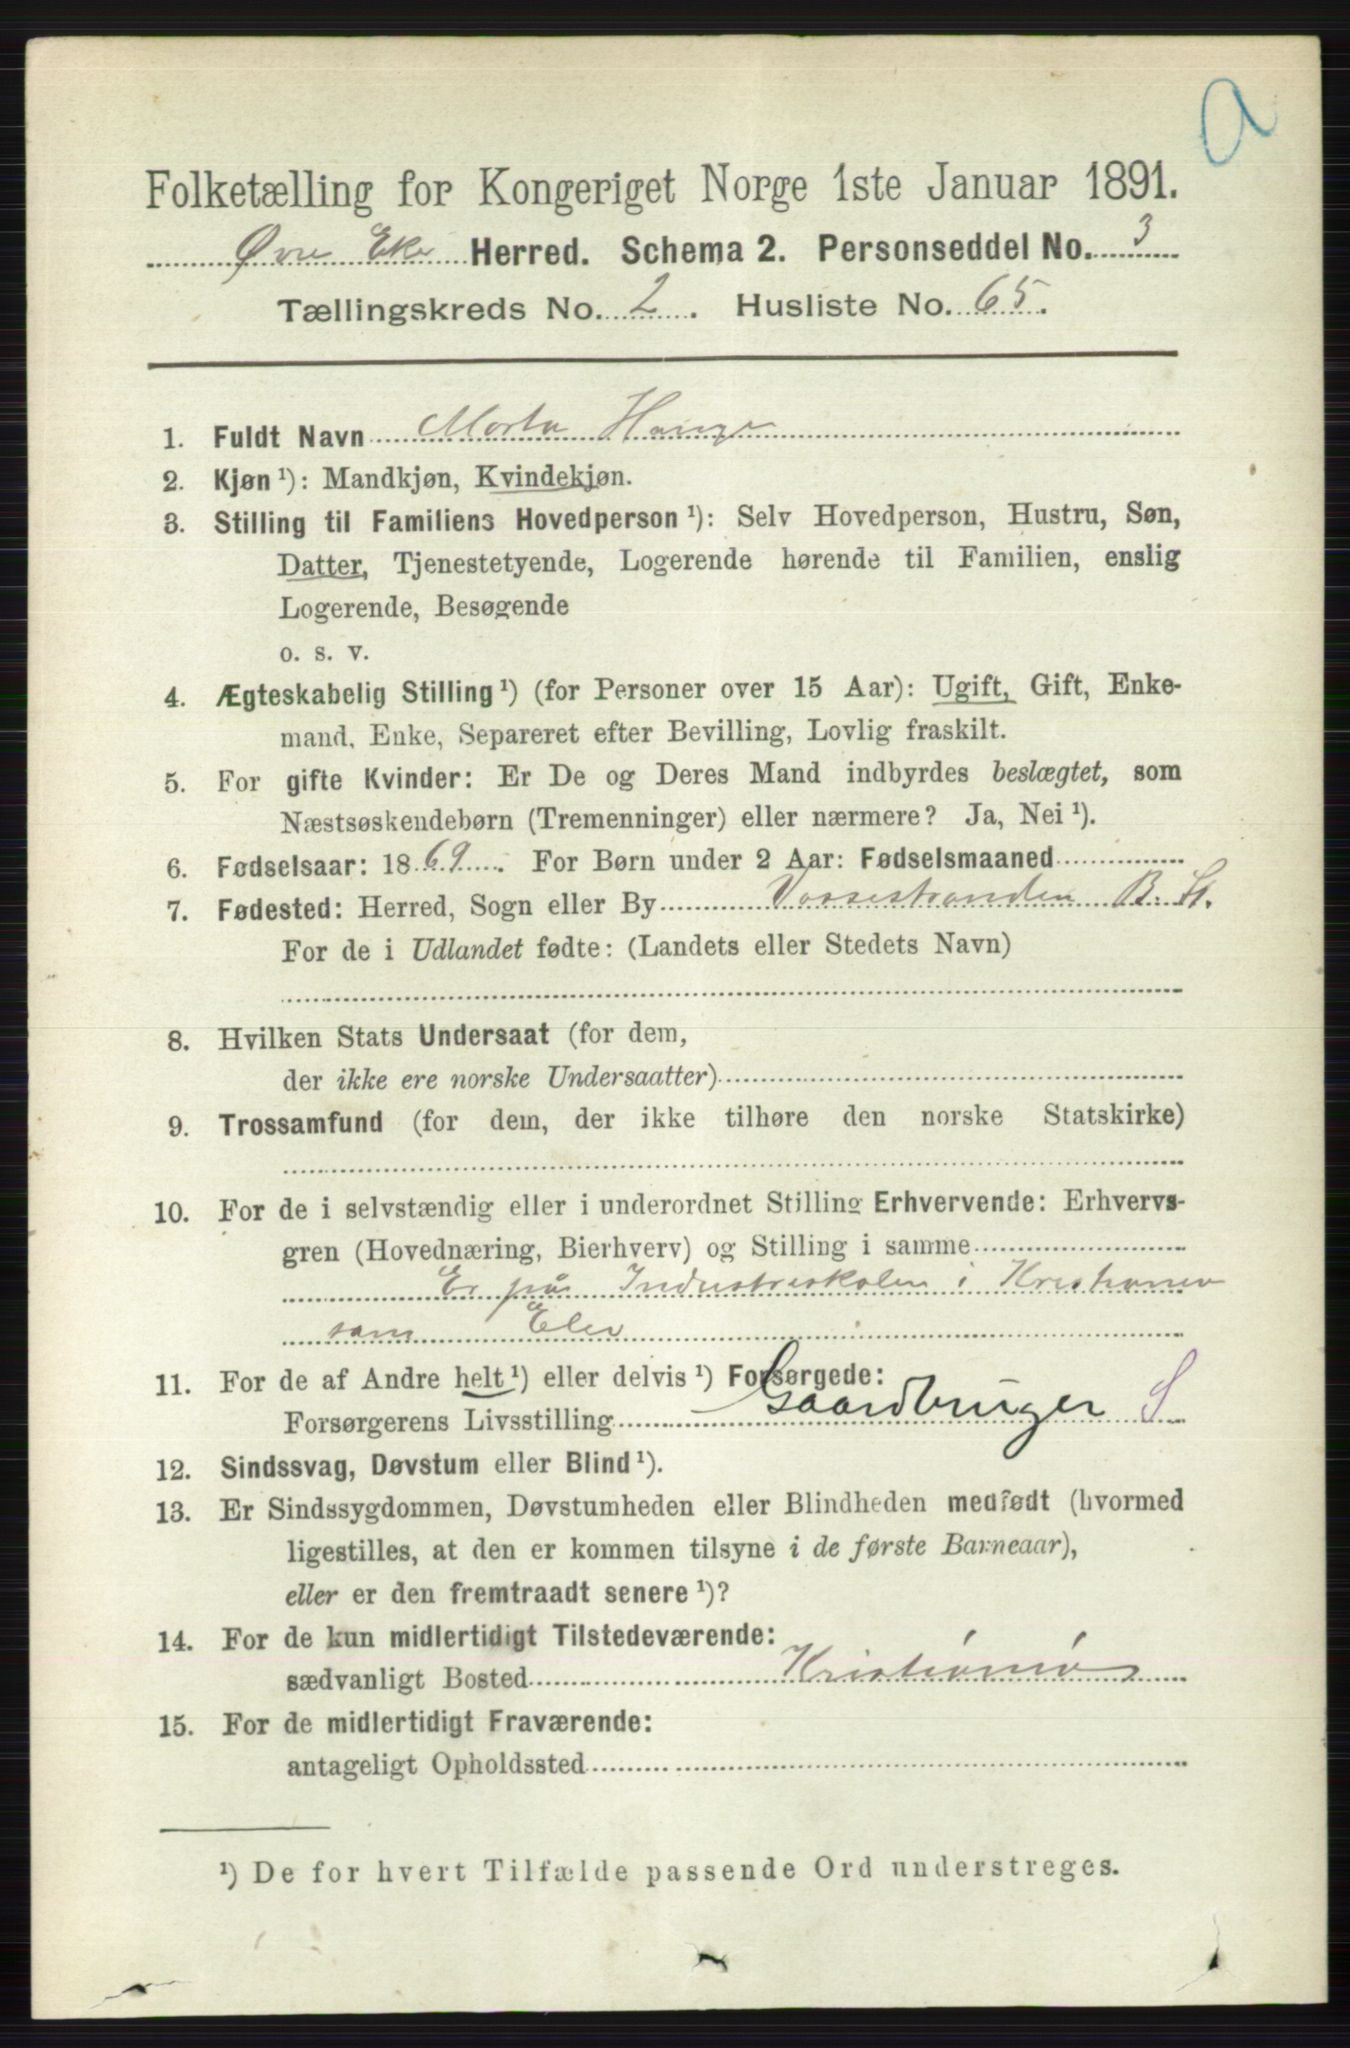 a
Folketælling for Kongeriget Norge 1ste Januar 1891.
Øvre Eker Herred. Schema 2. Personseddel No. 3
Tællingskreds No. 2. Husliste No. 65.
1. Fuldt Navn Marta Hauge
2. Kjøn ¹): Mandkjøn, Kvindekjøn.
3. Stilling til Familiens Hovedperson ¹): Selv Hovedperson, Hustru, Søn,
Datter, Tjenestetyende, Logerende hørende til Familien, enslig
Logerende, Besøgende
o. s. v.
4. Ægteskabelig Stilling ¹) (for Personer over 15 Aar): Ugift, Gift, Enke-
mand, Enke, Separeret efter Bevilling, Lovlig fraskilt.
5. For gifte Kvinder: Er De og Deres Mand indbyrdes beslægtet, som
Næstsøskendebørn (Tremenninger) eller nærmere? Ja, Nei ¹).
6. Fødselsaar: 1869. For Børn under 2 Aar: Fødselsmaaned
7. Fødested: Herred, Sogn eller By Vossestranden B. St.
For de i Udlandet fødte: (Landets eller Stedets Navn)
8. Hvilken Stats Undersaat (for dem,
der ikke ere norske Undersaatter)
9. Trossamfund (for dem, der ikke tilhøre den norske Statskirke)
10. For de i selvstændig eller i underordnet Stilling Erhvervende: Erhvervs-
gren (Hovednæring, Bierhverv) og Stilling i samme
Er på Industriskolen i Kristiania
som Elev
11. For de af Andre helt ¹) eller delvis ¹) Forsørgede:
Forsørgerens Livsstilling Gaardbruger S
12. Sindssvag, Døvstum eller Blind ¹).
13. Er Sindssygdommen, Døvstumheden eller Blindheden medfødt (hvormed
ligestilles, at den er kommen tilsyne i de første Barneaar),
eller er den fremtraadt senere ¹)?
14. For de kun midlertidigt Tilstedeværende:
sædvanligt Bosted Kristiania
15. For de midlertidigt Fraværende:
antageligt Opholdssted
¹) De for hvert Tilfælde passende Ord understreges.